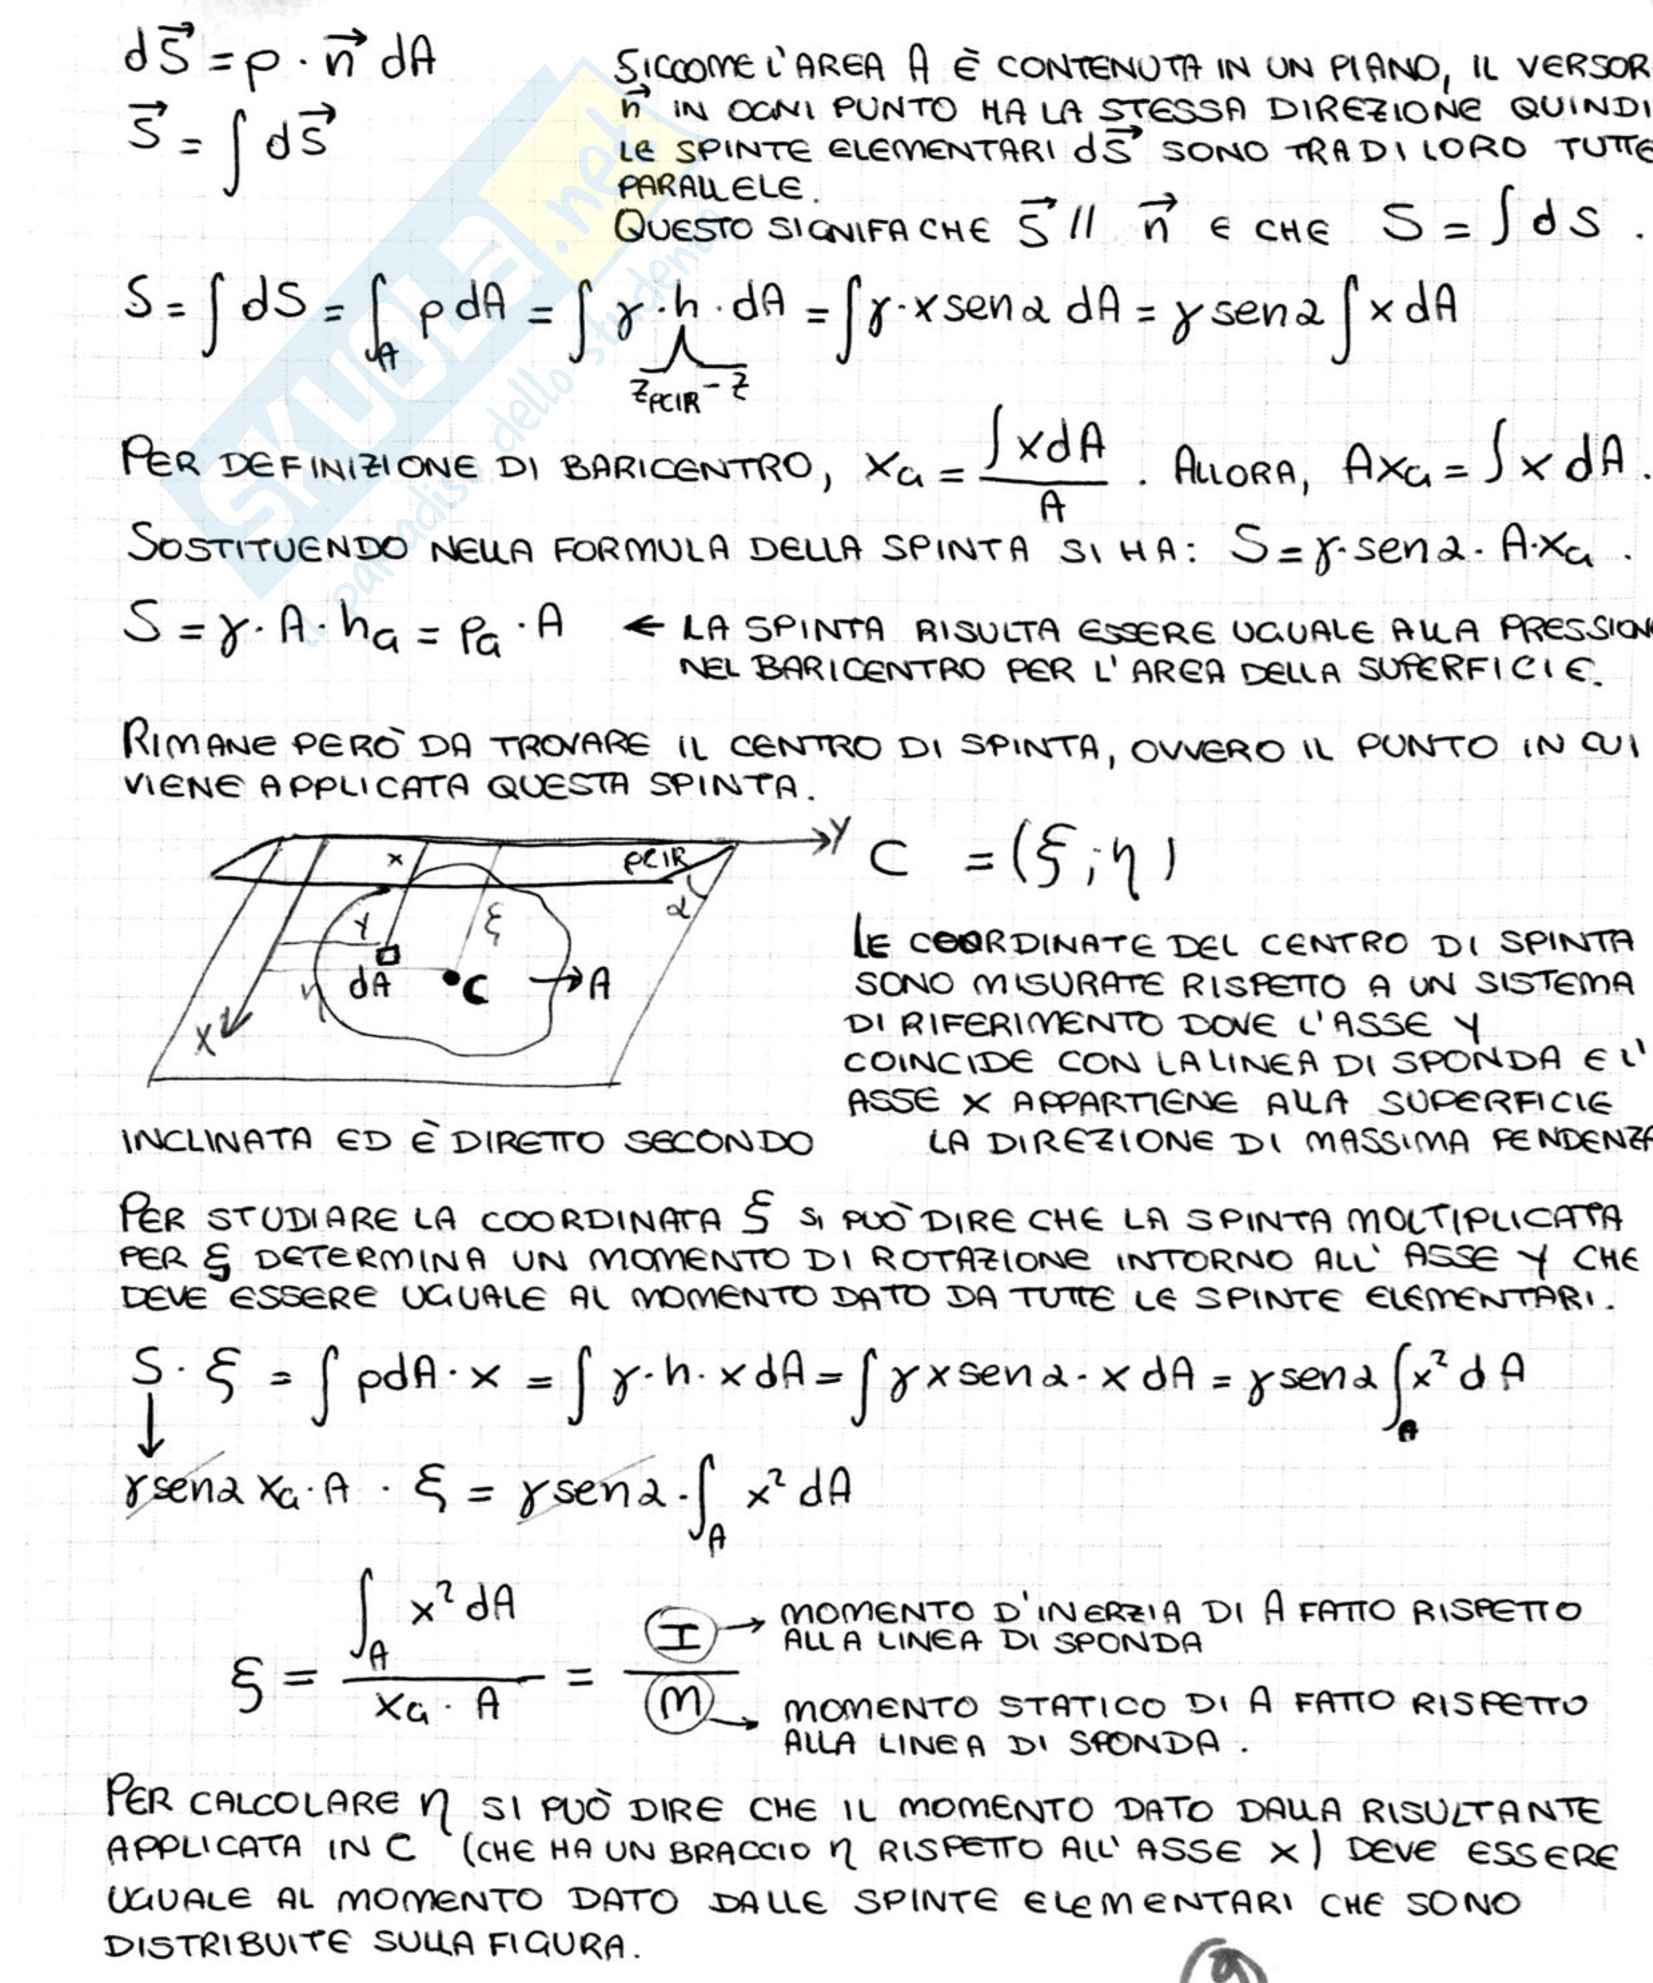 dS⃗ = p · n⃗ dA
S⃗ = ∫ dS⃗
SICCOME L'AREA A È CONTENUTA IN UN PIANO, IL VERSOR
n⃗ IN OGNI PUNTO HA LA STESSA DIREZIONE QUINDI
LE SPINTE ELEMENTARI dS⃗ SONO TRA DI LORO TUTTE
PARALLELE.
QUESTO SIGNIFA CHE S⃗ // n⃗ E CHE S = ∫ dS .
S = ∫ dS = ∫_A p dA = ∫ γ · h · dA = ∫ γ · x sen α dA = γ sen α ∫ x dA
z_PCIR - z
PER DEFINIZIONE DI BARICENTRO, x_G = ∫ x dA / A . ALLORA, A x_G = ∫ x dA .
SOSTITUENDO NELLA FORMULA DELLA SPINTA SI HA: S = γ · sen α · A · x_G .
S = γ · A · h_G = p_G · A ← LA SPINTA RISULTA ESSERE UGUALE ALLA PRESSION
NEL BARICENTRO PER L'AREA DELLA SUPERFICIE.
RIMANE PERÒ DA TROVARE IL CENTRO DI SPINTA, OVVERO IL PUNTO IN CUI
VIENE APPLICATA QUESTA SPINTA.
Y
x
PCIR
α
Y
ξ
dA
C
A
η
X
C = (ξ ; η)
LE COORDINATE DEL CENTRO DI SPINTA
SONO MISURATE RISPETTO A UN SISTEMA
DI RIFERIMENTO DOVE L'ASSE Y
COINCIDE CON LA LINEA DI SPONDA E L'
ASSE X APPARTIENE ALLA SUPERFICIE
INCLINATA ED È DIRETTO SECONDO LA DIREZIONE DI MASSIMA PENDENZA
PER STUDIARE LA COORDINATA ξ SI PUÒ DIRE CHE LA SPINTA MOLTIPLICATA
PER ξ DETERMINA UN MOMENTO DI ROTAZIONE INTORNO ALL'ASSE Y CHE
DEVE ESSERE UGUALE AL MOMENTO DATO DA TUTTE LE SPINTE ELEMENTARI.
S · ξ = ∫ p dA · x = ∫ γ · h · x dA = ∫ γ x sen α · x dA = γ sen α ∫_A x² dA
↓
γ sen α x_G · A · ξ = γ sen α · ∫_A x² dA
ξ = ∫_A x² dA / x_G · A = I / M
I → MOMENTO D'INERZIA DI A FATTO RISPETTO
ALLA LINEA DI SPONDA
M → MOMENTO STATICO DI A FATTO RISPETTO
ALLA LINEA DI SPONDA .
PER CALCOLARE η SI PUÒ DIRE CHE IL MOMENTO DATO DALLA RISULTANTE
APPLICATA IN C (CHE HA UN BRACCIO η RISPETTO ALL'ASSE X) DEVE ESSERE
UGUALE AL MOMENTO DATO DALLE SPINTE ELEMENTARI CHE SONO
DISTRIBUITE SULLA FIGURA.
SKUOLA.net
il paradiso dello studente